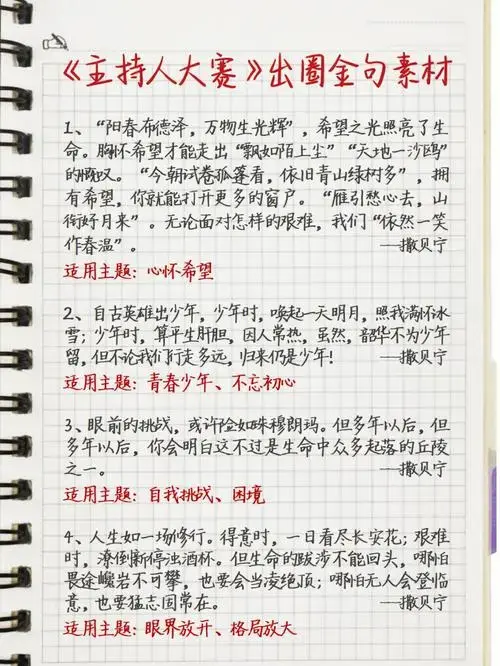 《主持人大赛》出圈金句素材
1、“阳春布德泽，万物生光辉”，希望之光照亮了生
命。胸怀希望才能走出“飘如陌上尘”“天地一沙鸥”
的慨叹。“今朝试卷孤篷看，依旧青山绿树多”，拥
有希望，你就能打开更多的窗户。“雁引愁心去，山
衔好月来”。无论面对怎样的艰难，我们“依然一笑
作春温”。 —撒贝宁
适用主题：心怀希望
2、自古英雄出少年，少年时，唤起一天明月，照我满怀冰
雪；少年时，算平生肝胆，因人常热，虽然，韶华不为少年
留，但不论我们行走多远，归来仍是少年！ —撒贝宁
适用主题：青春少年、不忘初心
3、眼前的挑战，或许险如珠穆朗玛。但多年以后，但
多年以后，你会明白这不过是生命中众多起落的丘陵
之一。 —撒贝宁
适用主题：自我挑战、困境
4、人生如一场修行。得意时，一日看尽长安花；艰难
时，潦倒新停浊酒杯。但生命的跋涉不能回头，哪怕
畏途巉岩不可攀，也要会当凌绝顶；哪怕无人会登临
意，也要猛志固常在。 —撒贝宁
适用主题：眼界放开、格局放大